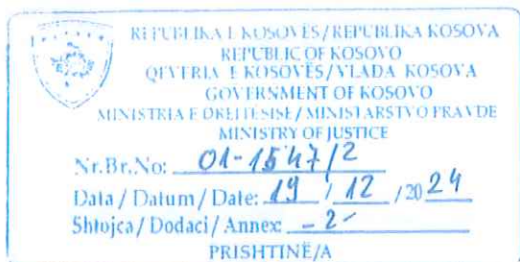 REPUBLIKA E KOSOVËS / REPUBLIKA KOSOVA
REPUBLIC OF KOSOVO
QEVERIA E KOSOVËS / VLADA KOSOVA
GOVERNMENT OF KOSOVO
MINISTRIA E DREJTËSISË / MINISTARSTVO PRAVDE
MINISTRY OF JUSTICE
Nr.Br.No: 01-1547/2
Data / Datum / Date: 19 / 12 / 2024
Shtojca / Dodaci / Annex: -2-
PRISHTINË/A